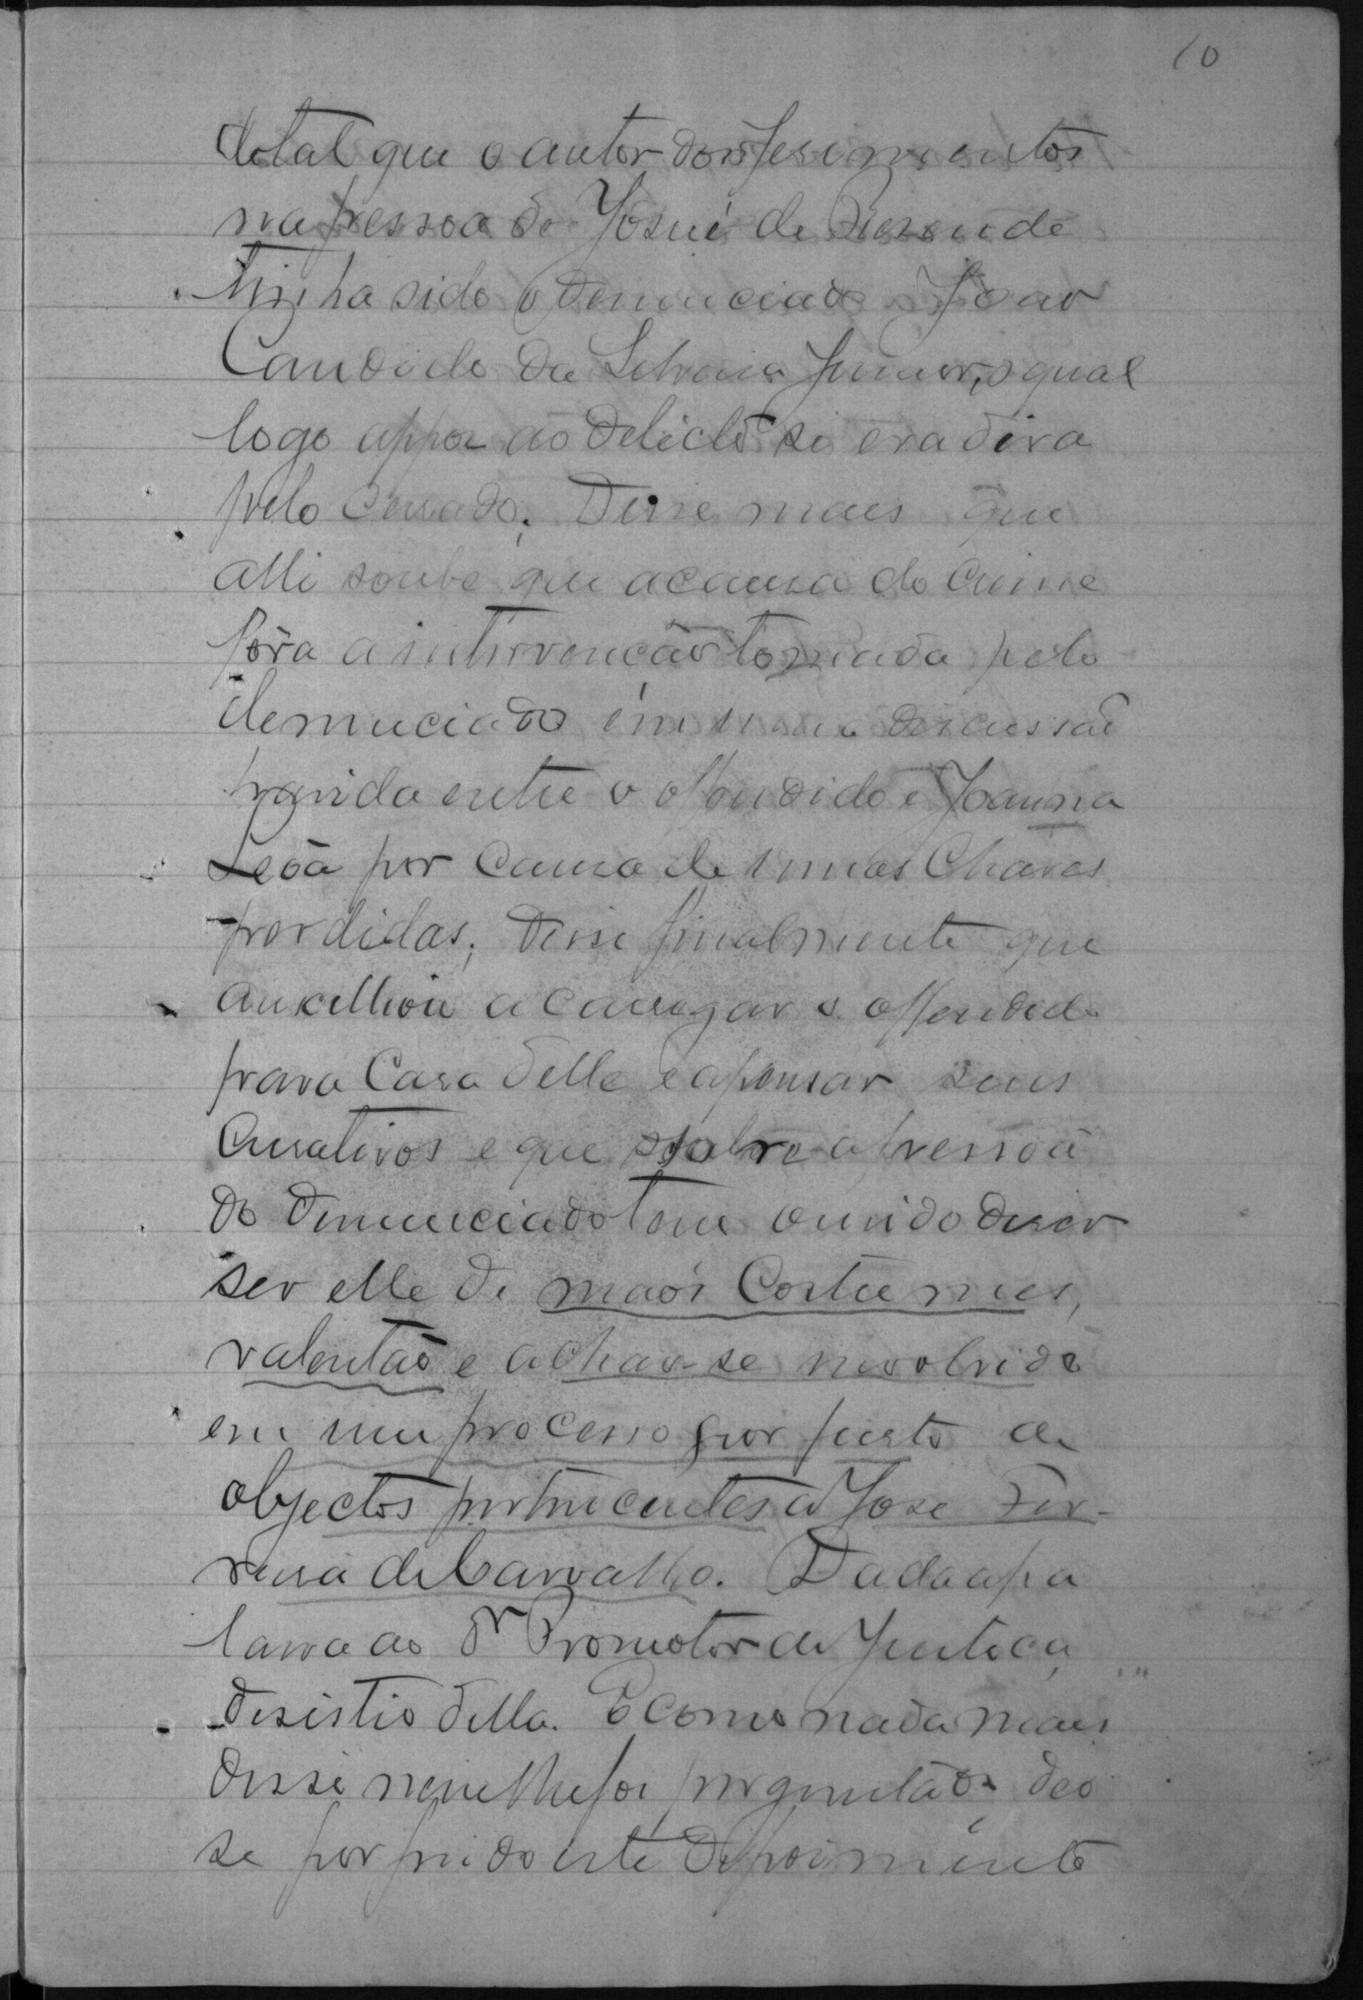 10
dotal que o autor dos ferimentos
na pessoa de Josué de Rezende
tinha sido o denunciado João
Candido da Silveira Junior, o qual
logo appoz ao delicto si evadira
pelo cerrado; Disse mais que
alli soube que a causa do crime
fôra a intirvenção tomada pelo
denunciado em uma discussão
havida entre o offendido e Joanna
Leôa por causa de umas chaves
perdidas; disse finalmente que
auxilliou a carregar o offendido
para casa delle e a pensar seus
curativos e que sobre a pessoa
do denunciado tem ouvido diser
ser elle de maos costumes,
valentão e achar-se involvido
em um processo por furto de
objectos pertencentes a José Fer-
reira de Carvalho. Dada a pa
lavra ao Dr Promotor de Justiça
desistio della. E como nada mais
disse nem lhe foi perguntado deo
se por findo este depoimento